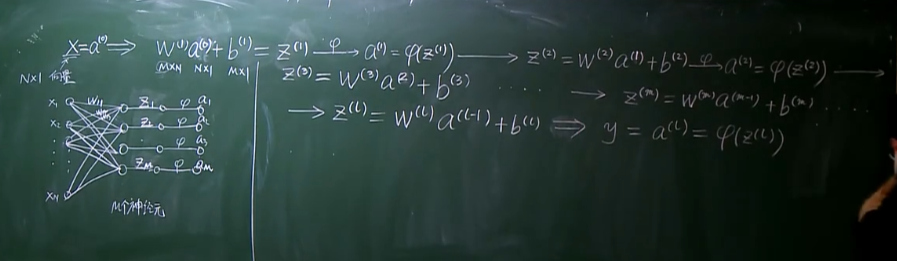 X=a⁽⁰⁾ ⇒ W⁽¹⁾a⁽⁰⁾+b⁽¹⁾ = z⁽¹⁾ —φ→ a⁽¹⁾=φ(z⁽¹⁾) → z⁽²⁾=W⁽²⁾a⁽¹⁾+b⁽²⁾ —φ→ a⁽²⁾=φ(z⁽²⁾) →
N×1 向量 M×N N×1 M×1
z⁽³⁾=W⁽³⁾a⁽²⁾+b⁽³⁾ ···· → z⁽ᵐ⁾=W⁽ᵐ⁾a⁽ᵐ⁻¹⁾+b⁽ᵐ⁾ ····
→ z⁽ˡ⁾=W⁽ˡ⁾a⁽ˡ⁻¹⁾+b⁽ˡ⁾ ⇒ y=a⁽ˡ⁾=φ(z⁽ˡ⁾)
x₁ W₁₁ z₁ φ a₁
x₂ z₂ φ
φ a₃
z_M φ a_M
x_N
M个神经元